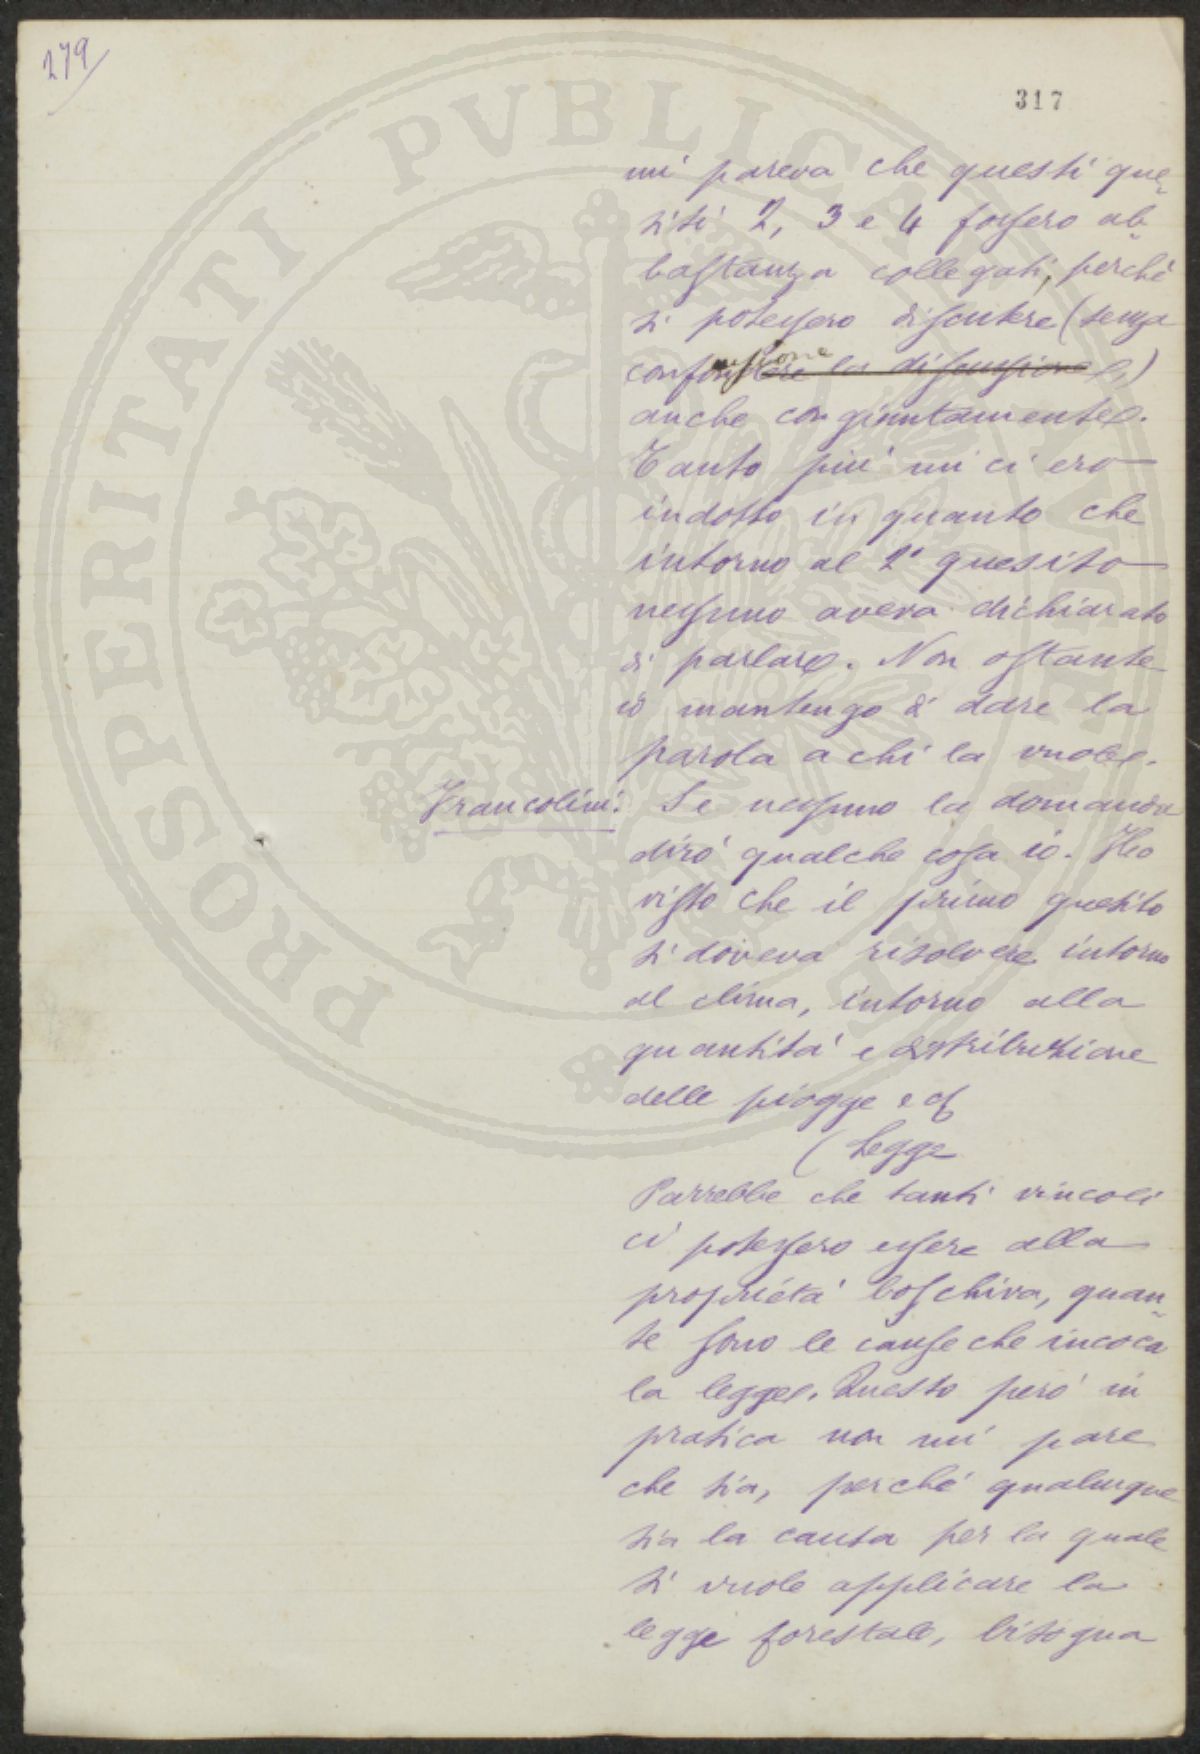 279
317
mi pareva che questi que-
siti 2, 3 e 4 fossero ab-
bastanza collegati, perché
si potessero discutere (senza
confusione la discussione)
anche congiuntamente.
Tanto più mi ci ero
indotto in quanto che
intorno al 2° quesito
nessuno aveva dichiarato
di parlare. Non ostante
io mantengo di dare la
parola a chi la vuole.
Francolini: Se nessuno la domanda
dirò qualche cosa io. Ho
visto che il primo quesito
si doveva risolvere intorno
al clima, intorno alla
quantità e distribuzione
delle piogge e
(legge
Parrebbe che tanti vincoli
ci potessero essere alla
proprietà boschiva, quan-
te sono le cause che incoca
la legge. Questo però in
pratica non mi pare
che sia, perché qualunque
sia la causa per la quale
si vuole applicare la
legge forestale, bisogna
PUBLICAE
PROSPERITATI